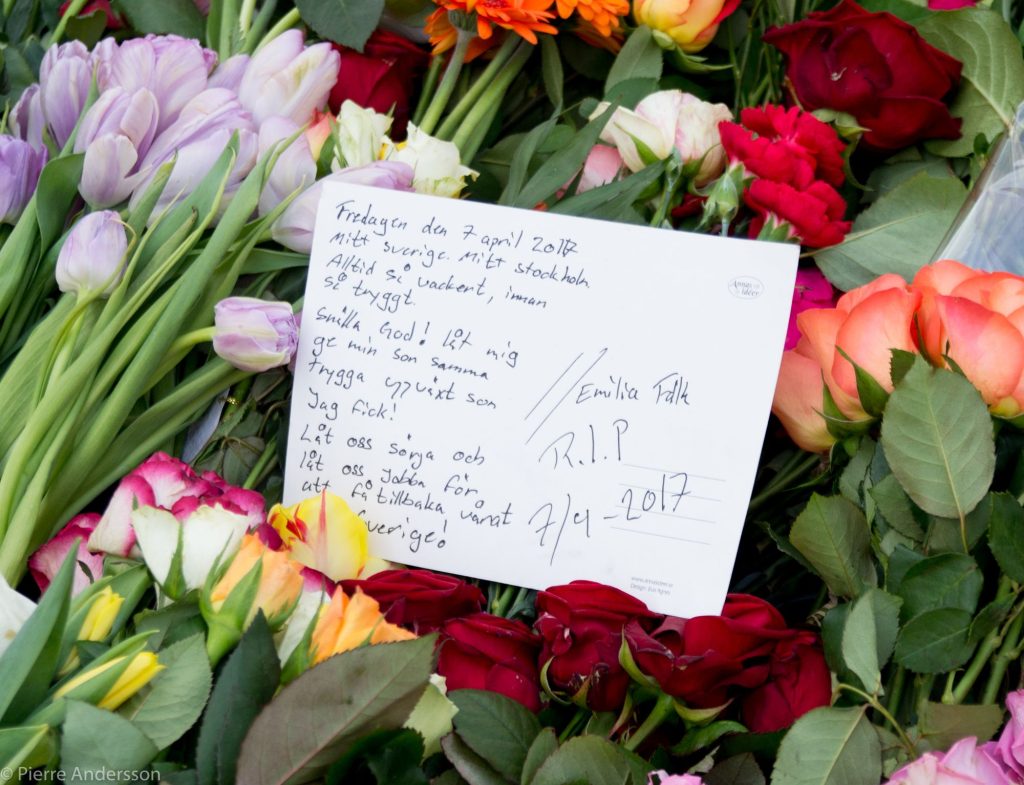 Fredagen den 7 april 2017
Mitt sverige. Mitt stockholm
Alltid så vackert, innan
så tryggt.
Snälla God! låt mig
ge min son samma
trygga uppväxt som
Jag fick!
Låt oss sörja och
låt oss Jobba för
att få tillbaka vårat
Sverige!
// Emilia Falk
R.I.P
7/4-2017
Annas
Idéer
© Pierre Andersson